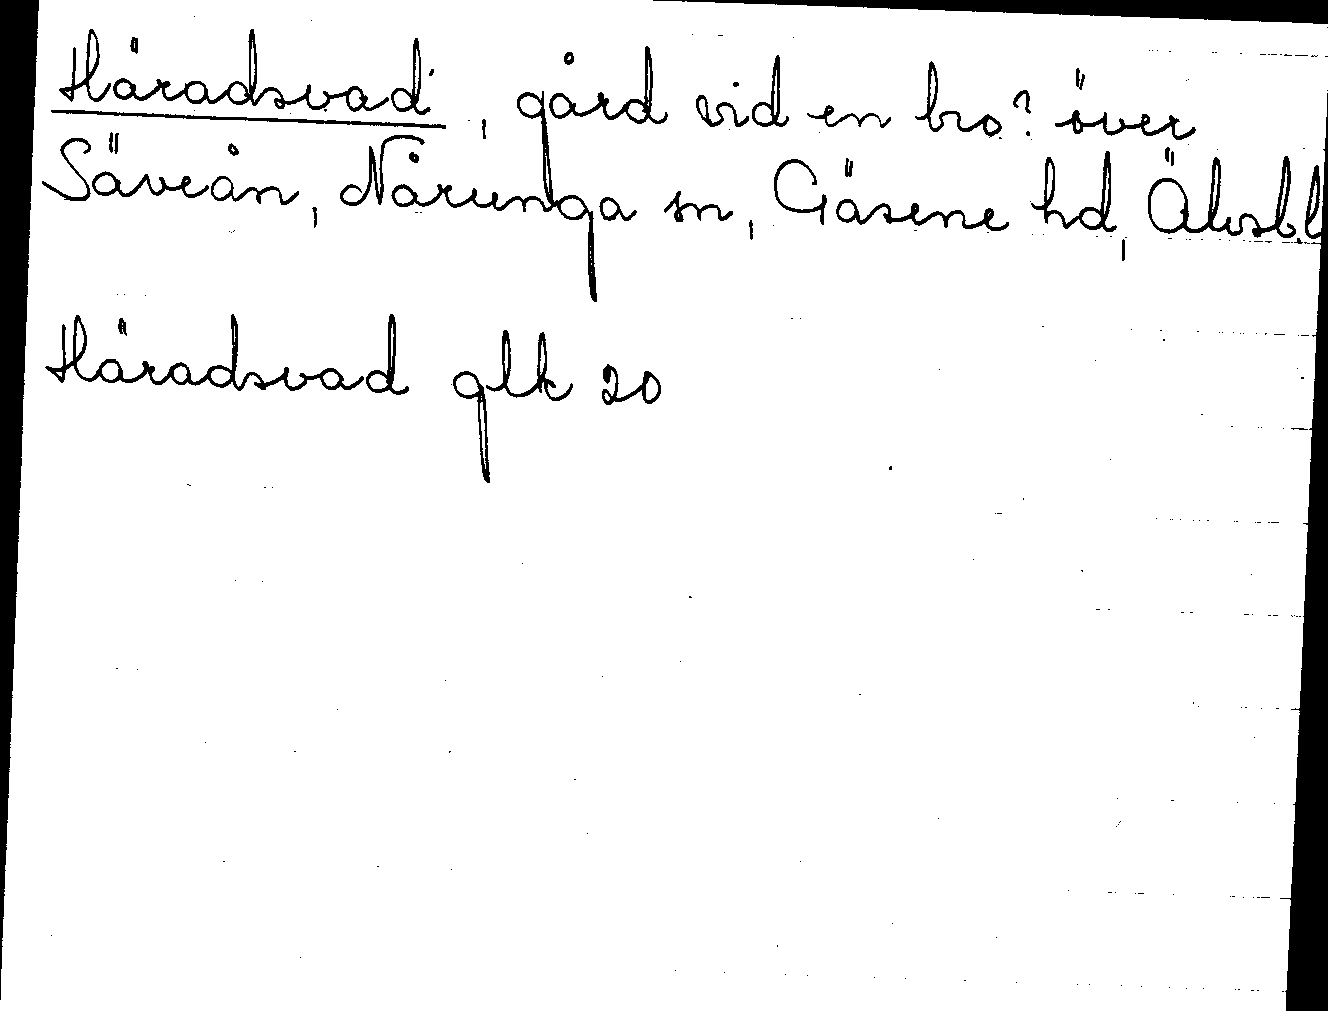 Häradsvad, gård vid en bro? över
Säveån, Nårunga sn, Gäsene hd, Älvsb.l
Häradsvad glk 20